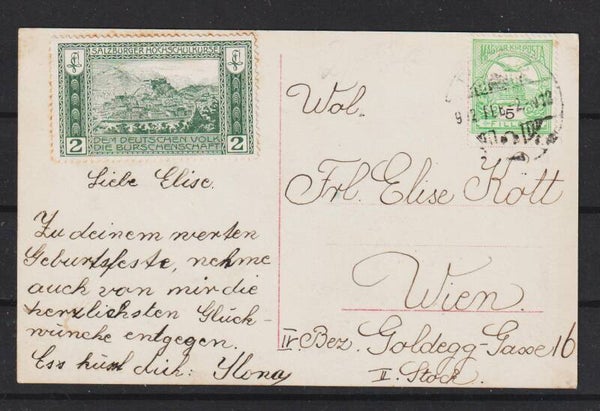 SALZBURGER HOCHSCHULKURSE
2 2
DEM DEUTSCHEN VOLK
DIE BURSCHENSCHAFT
MAGYAR KIR. POSTA
5
FILLÉR
912 FEB
Liebe Elise.
Zu deinem werten
Geburtsfeste, nehme
auch von mir die
herzlichsten Glück-
wünche entgegen.
Ess küsst dich: Ilona
Wol.
Frl. Elise Kott
Wien.
IV. Bez. Goldegg-Gasse 16
II. Stock.